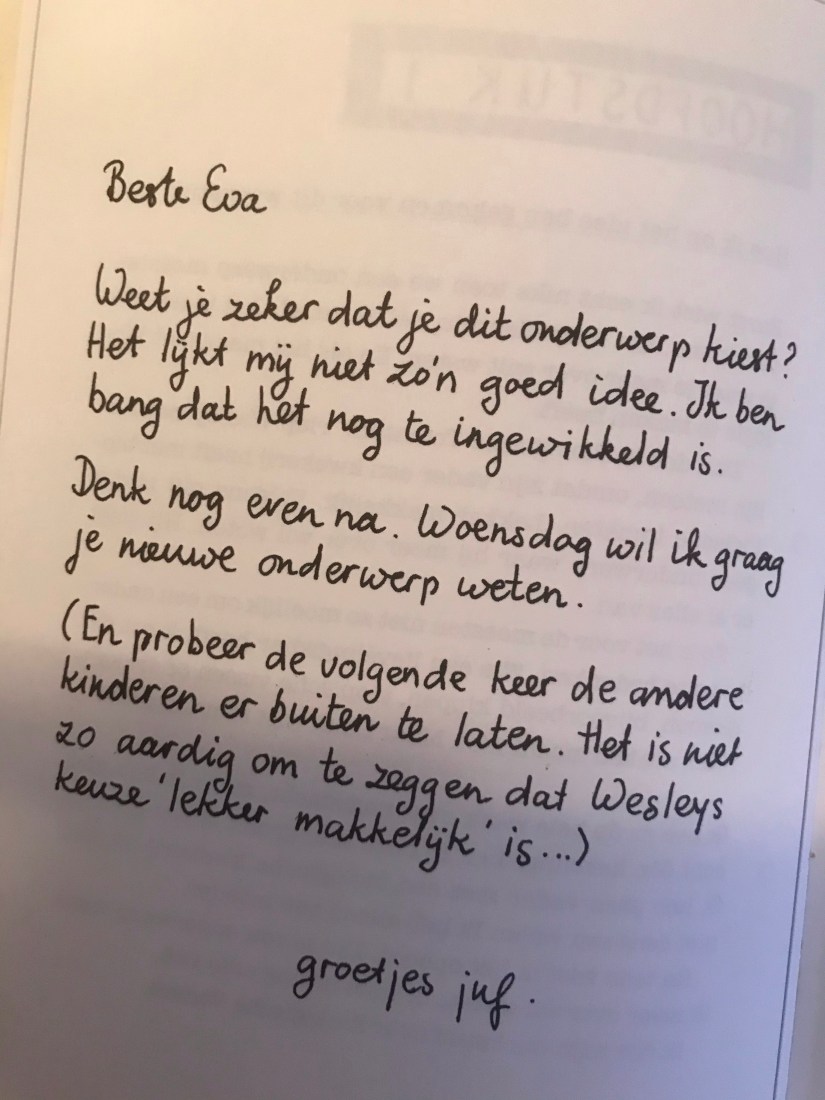 HOOFDSTUK 1
Beste Eva
Weet je zeker dat je dit onderwerp kiest?
Het lijkt mij niet zo'n goed idee. Ik ben
bang dat het nog te ingewikkeld is.
Denk nog even na. Woensdag wil ik graag
je nieuwe onderwerp weten.
(En probeer de volgende keer de andere
kinderen er buiten te laten. Het is niet
zo aardig om te zeggen dat Wesleys
keuze 'lekker makkelijk' is...)
groetjes juf.